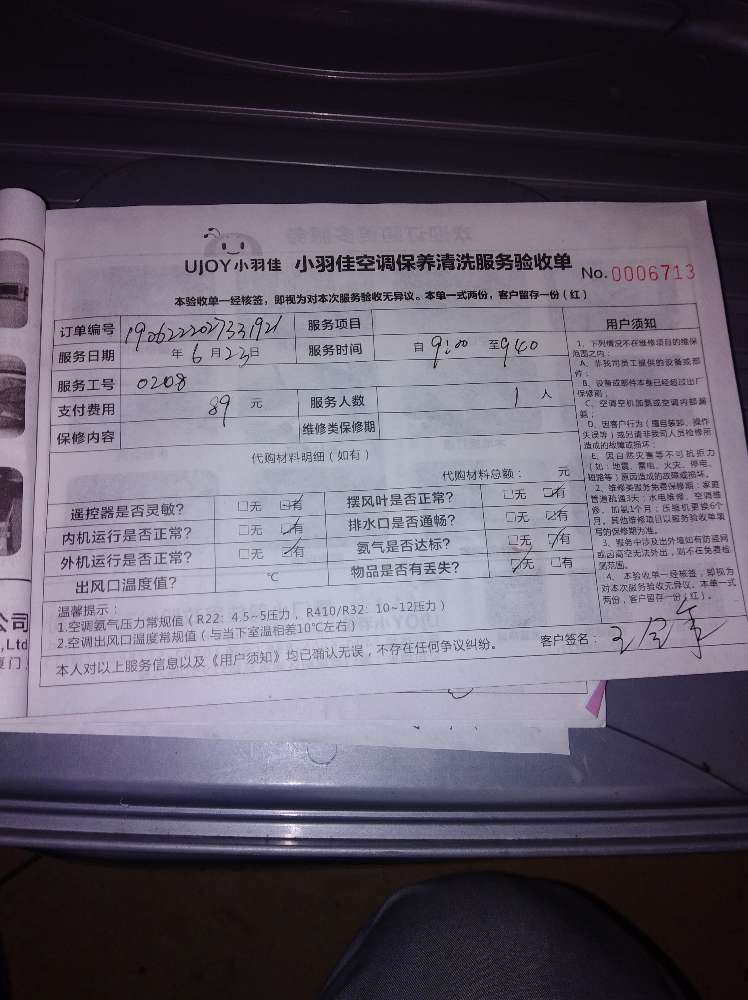 UJOY小羽佳 小羽佳空调保养清洗服务验收单 No.0006713
本验收单一经核签，即视为对本次服务验收无异议。本单一式两份，客户留存一份（红）
订单编号 190622202733192 服务项目
服务日期 年 6 月 23 日 服务时间 自 9:00 至 940
服务工号 0208
支付费用 89 元 服务人数 1 人
保修内容 维修类保修期
代购材料明细（如有）
代购材料总额： 元
遥控器是否灵敏？ □无 □有 摆风叶是否正常？ □无 □有
内机运行是否正常？ □无 □有 排水口是否通畅？ □无 □有
外机运行是否正常？ □无 □有 氨气是否达标？ □无 □有
出风口温度值？ ℃ 物品是否有丢失？ □无 □有
温馨提示：
1.空调氨气压力常规值（R22：4.5~5压力，R410/R32：10~12压力）
2.空调出风口温度常规值（与当下室温相差10℃左右）
本人对以上服务信息以及《用户须知》均已确认无误，不存在任何争议纠纷。
客户签名：
用户须知
1、下列情况不在维修项目的维保
范围之内：
A、非我司员工提供的设备或部
件；
B、设备或部件本身已经超过出厂
保修期；
C、空调空机加氨或空调内部漏
氨；
D、因客户行为（擅自装卸、操作
失误等）或另请非我司人员检修所
造成的故障或损坏；
E、因自然灾害等不可抗拒力
（如：地震、雷电、火灾、停电、
短路等）原因造成的故障或损坏。
2、维修类服务免费保修期：家庭
管道疏通3天；水电维修、空调维
修、加氨1个月；压缩机更换6个
月。其他维修项目以服务验收单填
写的保修期为准。
3、服务中涉及出外墙如有防盗网
或因高空无法外出，则不在免费检
测范围。
4、本验收单一经核签，即视为
对本次服务验收无异议。本单一式
两份，客户留存一份（红）。
公司
,Ltd
厦门